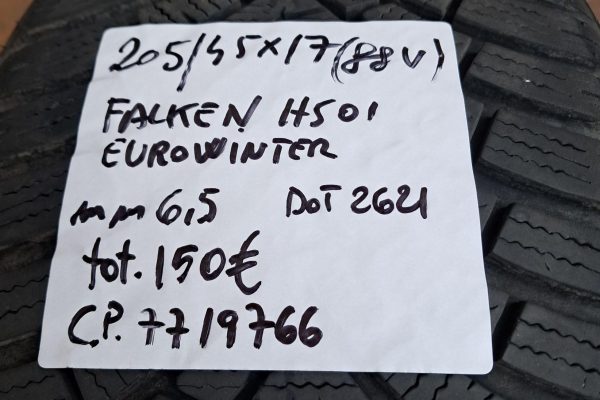 205/45x17(88V)
FALKEN HS01
EUROWINTER
mm 6,5 DOT 2621
tot. 150€
C.P. 7719766